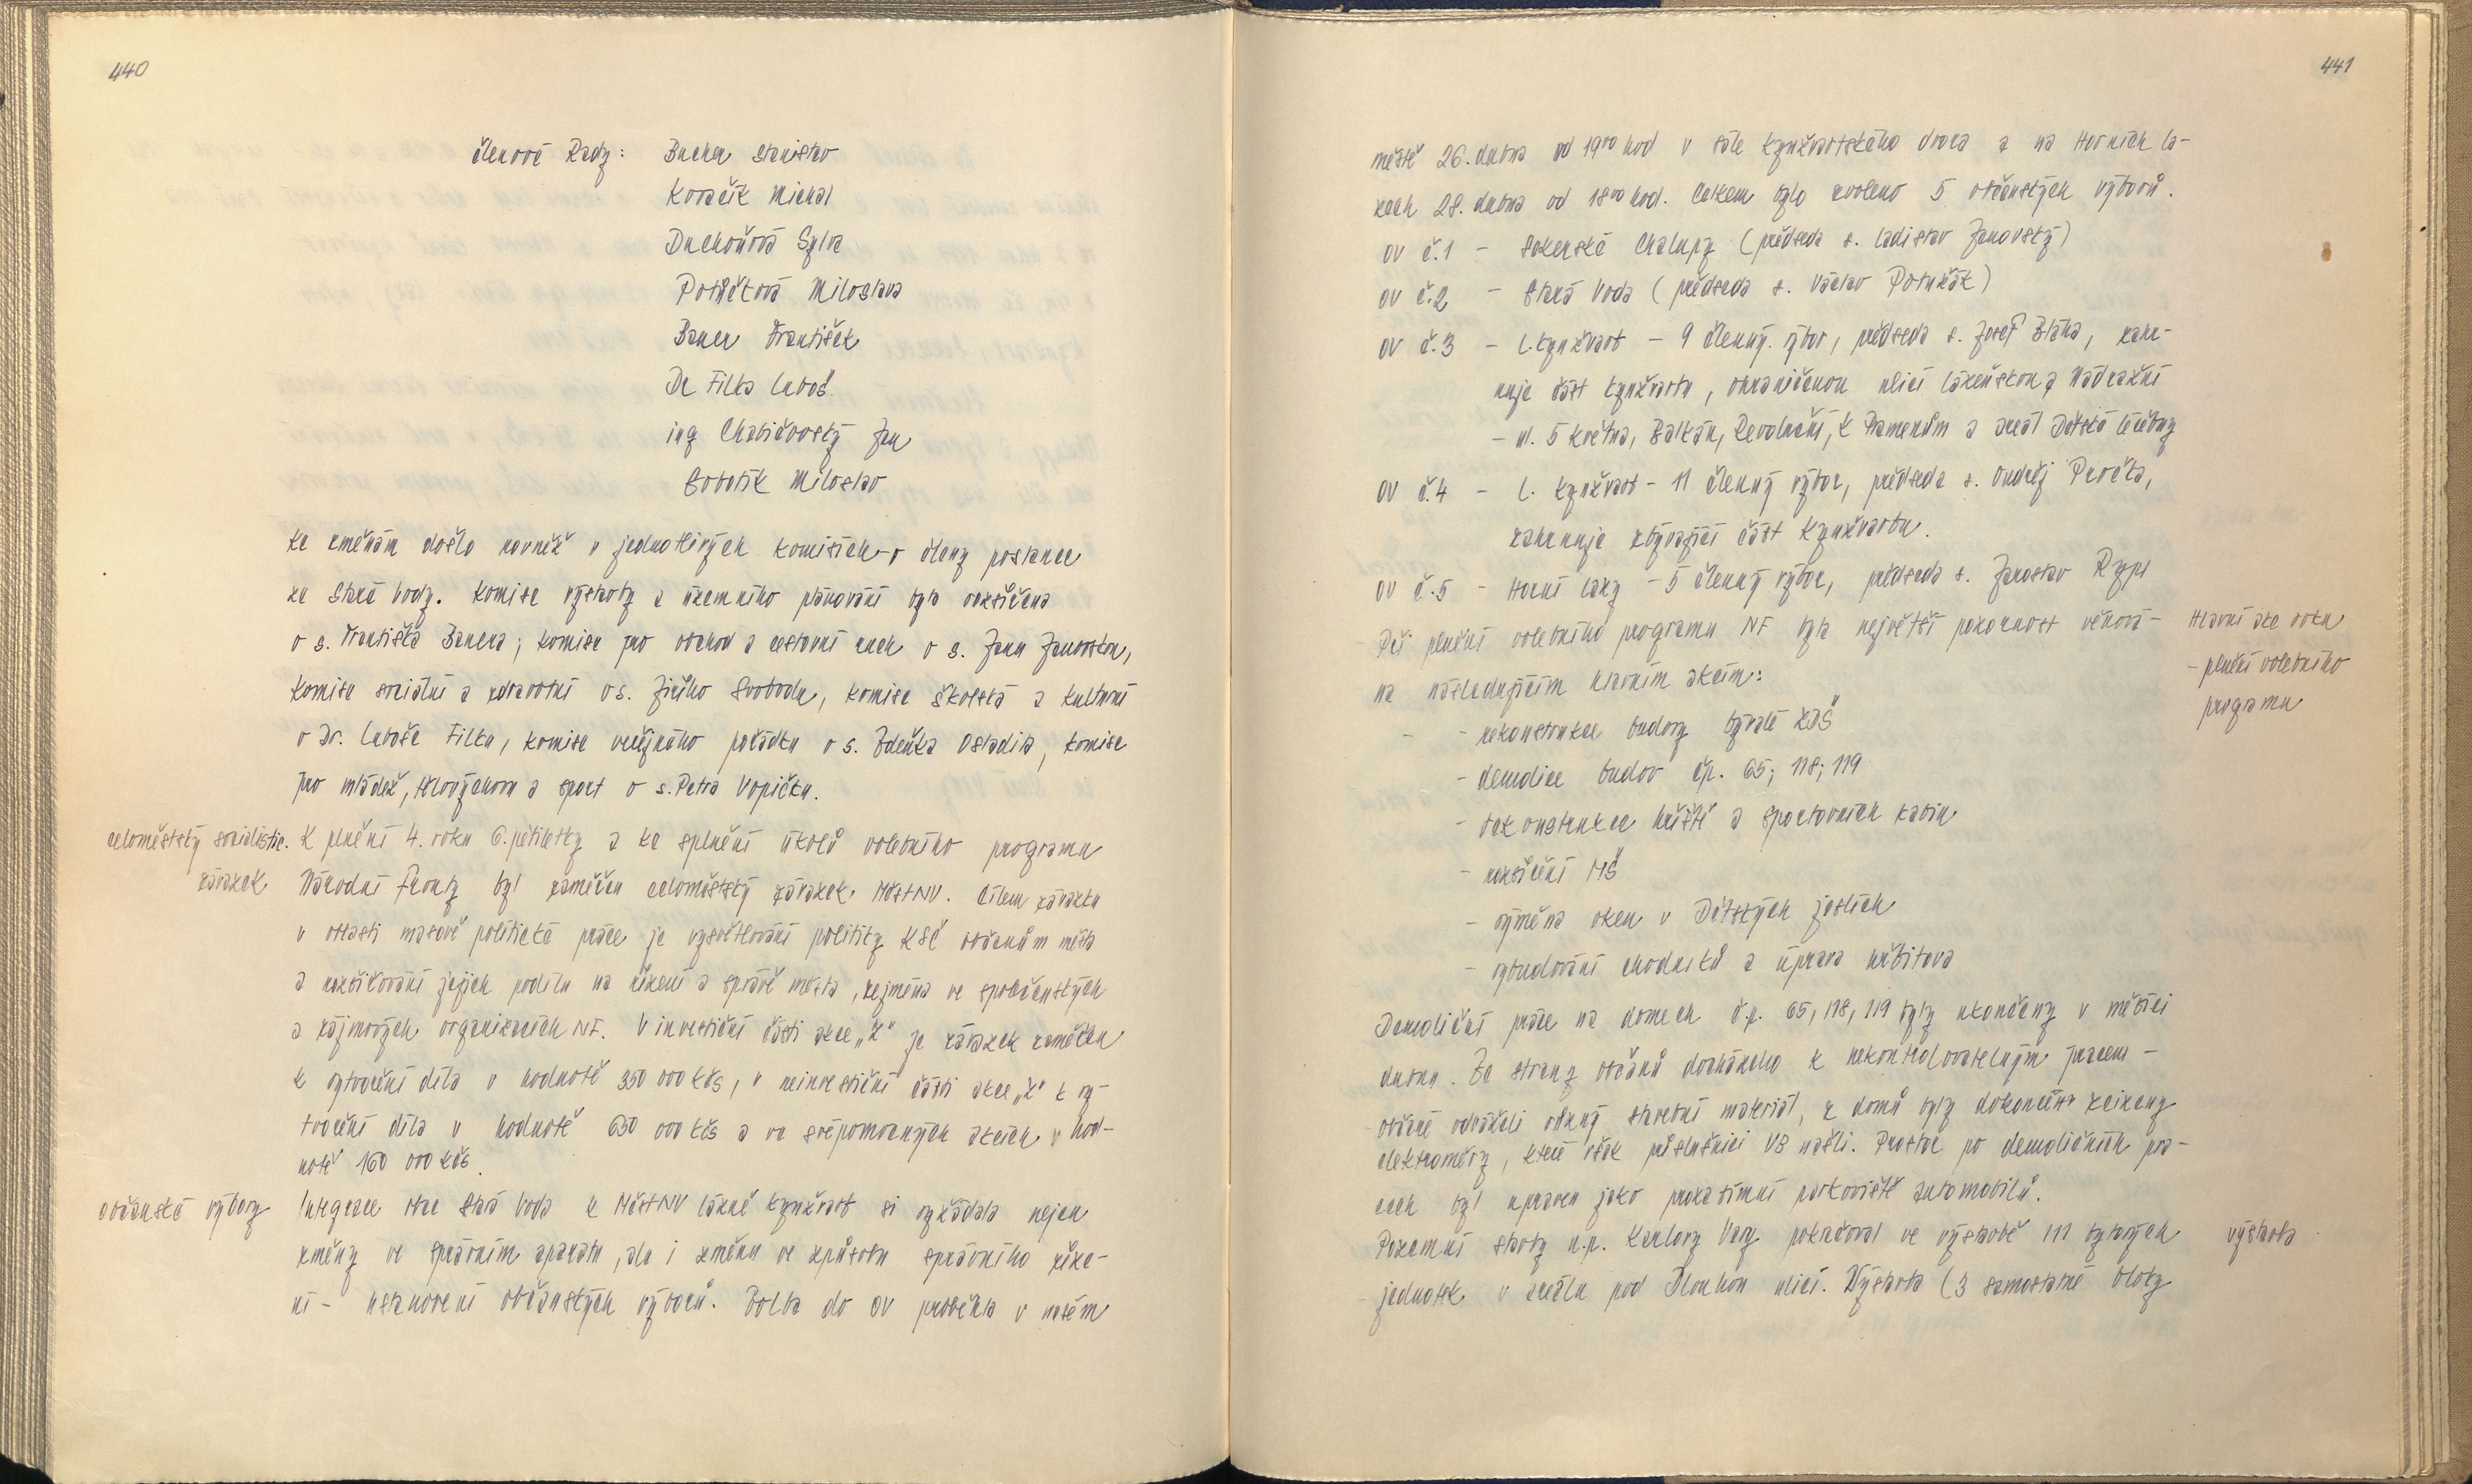 440
členové Rady: Bucher Stanislav
Kovačík Michal
Duchoňová Sylva
Potůčková Miloslava
Bauer František
Dr Filka Luboš
ing Chabičovský Jan
Sobotík Miloslav
Ke změnám došlo rovněž v jednotlivých komisích - o členy poslance
ze Staré Vody. Komise výstavby a územního plánování byla rozšířena
o s. Františka Bauera, komise pro obchod a cestovní ruch o s. Janu Janovskou,
komise sociální a zdravotní o s. Jiřího Svobodu, komise školská a kulturní
o Dr. Luboše Filku, komise veřejného pořádku o s. Zdeňka Osladila, komise
pro mládež, tělovýchovu a sport o s. Petra Vopičku.
celoměstský socialistic. K plnění 4. roku 6. pětiletky a ke splnění úkolů volebního programu
závazek Národní fronty byl zaměřen celoměstský závazek MěstNV. Cílem závazku
v oblasti masově politické práce je vysvětlování politiky KSČ občanům města
a rozšiřování jejich podílu na řízení a správě města, zejména ve společenských
a zájmových organizacích NF. V investiční části akce „Z" je závazek zaměřen
k vytvoření díla v hodnotě 350 000 Kčs, v neinvestiční části akce „Z" k vy-
tvoření díla v hodnotě 650 000 Kčs a ve svépomocných akcích v hod-
notě 160 000 Kčs.
občanské výbory Integrace obce Stará Voda k MěstNV Lázně Kynžvart si vyžádala nejen
změny ve správním aparátu, ale i změnu ve způsobu správního říze-
ní - ustanovení občanských výborů. Volba do OV proběhla v našem
441
městě 26. dubna od 19⁰⁰ hod v sále Kynžvartského dvora a na Horních La-
zech 28. dubna od 18⁰⁰ hod. Celkem bylo zvoleno 5 občanských výborů.
OV č.1 - Sekerské Chalupy (předseda s. Ladislav Janovský)
OV č.2 - Stará Voda (předseda s. Václav Potužák)
OV č.3 - L. Kynžvart - 9 členný výbor, předseda s. Josef Bláha, zahr-
nuje část Kynžvartu, ohraničenou ulicí Lázeňskou a Nádražní
- ul. 5 května, Balkán, Revoluční, K Pramenům a areál Dětské léčebny
OV č.4 - L. Kynžvart - 11 členný výbor, předseda s. Ondřej Pavčka,
zahrnuje zbývající část Kynžvartu.
OV č.5 - Horní Lazy - 5 členný výbor, předseda s. Jaroslav Rypl
Při plnění volebního programu NF byla největší pozornost věnová- Hlavní akce roku
na následujícím hlavním akcím: - plnění volebního
programu
- rekonstrukce budovy bývalé ZDŠ
- demolice budov čp. 65; 118; 119
- rekonstrukce hřiště a sportovních kabin
- rozšíření MŠ
- výměna oken v Dětských jeslích
- vybudování chodníků a úprava hřbitova
Demoliční práce na domech č.p. 65, 118, 119 byly ukončeny v měsíci
dubnu. Ze strany občanů docházelo k nekontrolovatelným pracem -
občané odváželi různý stavební materiál, z domů byly dokonce zcizeny
elektroměry, které však příslušníci VB našli. Prostor po demoličních pra-
cech byl upraven jako prozatímní parkoviště automobilů.
Pozemní stavby n.p. Karlovy Vary pokračoval ve výstavbě 111 bytových výstavba
jednotek v areálu pod Dlouhou ulicí. Výstavba (3 samostatné bloky